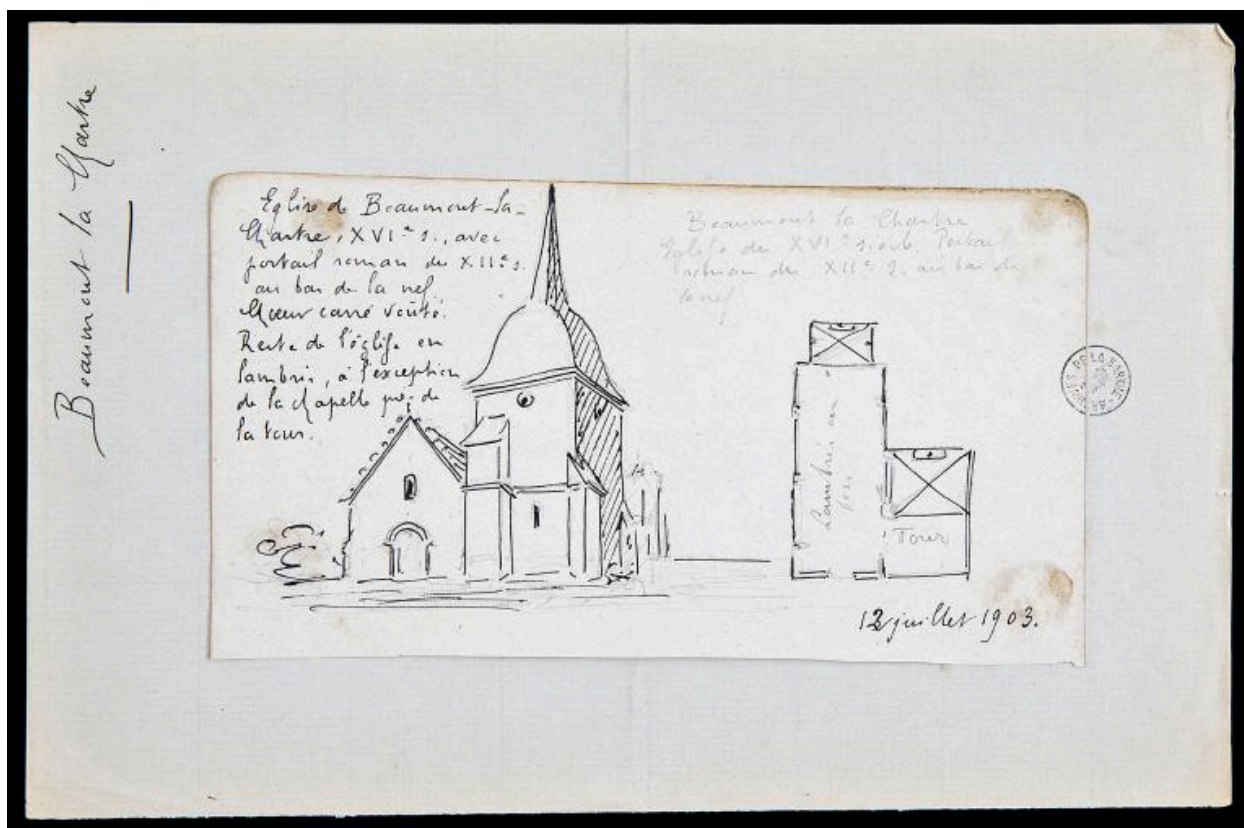 Beaumont la Chartre
Eglise de Beaumont-la-
Chartre, XVIe s., avec
portail roman du XIIe s.
au bas de la nef
Chœur carré voûté.
Reste de l'église en
lambris, à l'exception
de la chapelle près de
la tour.
Beaumont la Chartre
Eglise du XVIe siècle. Portail
roman du XIIe s. au bas de
la nef
Lambris en
Tour
12 juillet 1903.